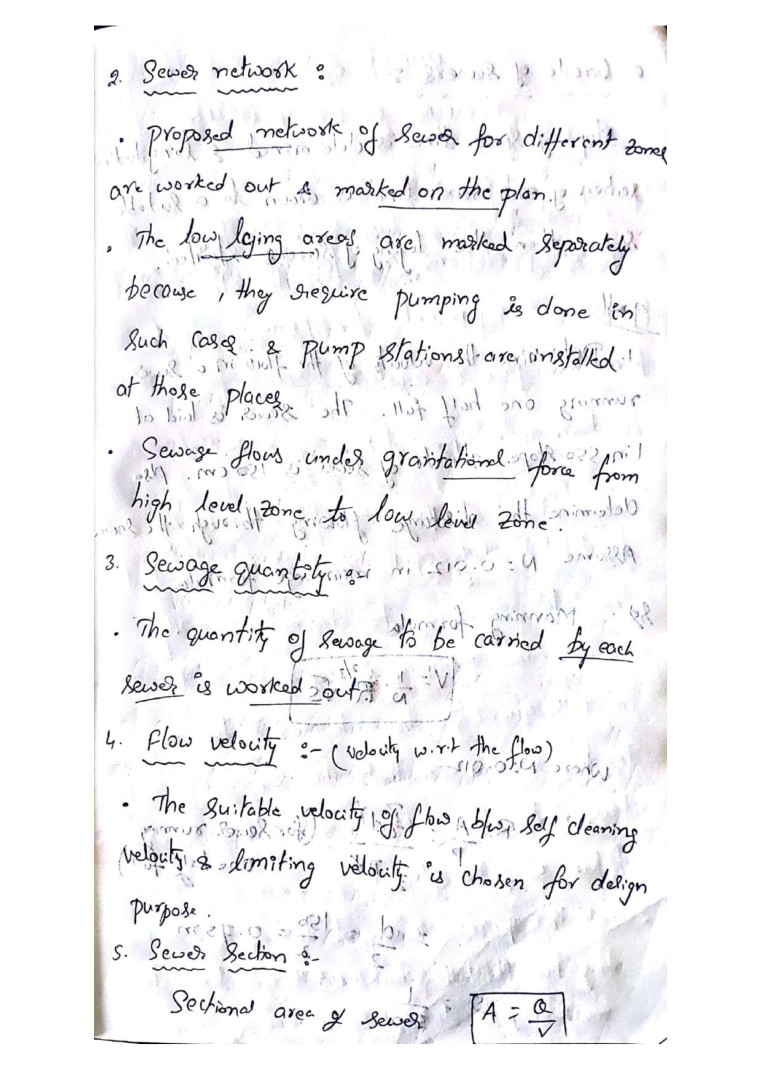 2. Sewer network :
• Proposed network of sewer for different zones
are worked out & marked on the plan.
• The low lying areas are marked separately
because, they require pumping is done in
such cases & pump stations are installed
at those places
• Sewage flows under gravitational force from
high level zone to low level zone.
3. Sewage quantity :-
• The quantity of sewage to be carried by each
sewer is worked out.
4. Flow velocity :- (velocity w.r.t the flow)
• The suitable velocity of flow b/w self cleaning
velocity & limiting velocity is chosen for design
purpose.
5. Sewer Section :-
Sectional area of sewer A = Q/V